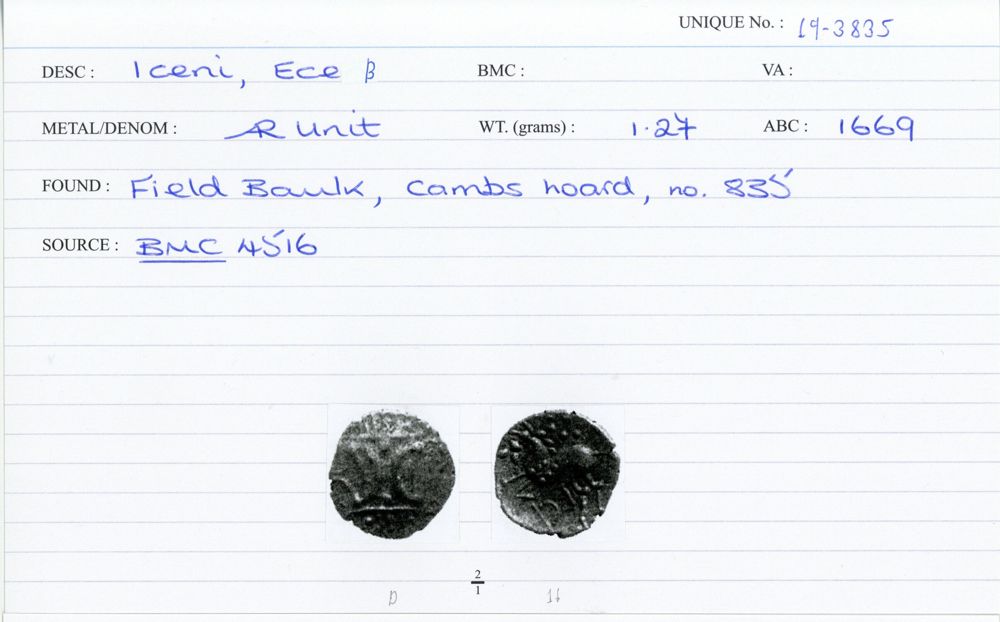 UNIQUE No. : 19-3835
DESC : Iceni, Ece β BMC : VA :
METAL/DENOM : AR Unit WT. (grams) : 1.27 ABC : 1669
FOUND : Field Baulk, Cambs hoard, no. 835
SOURCE : BMC 4516
2
1
D 16